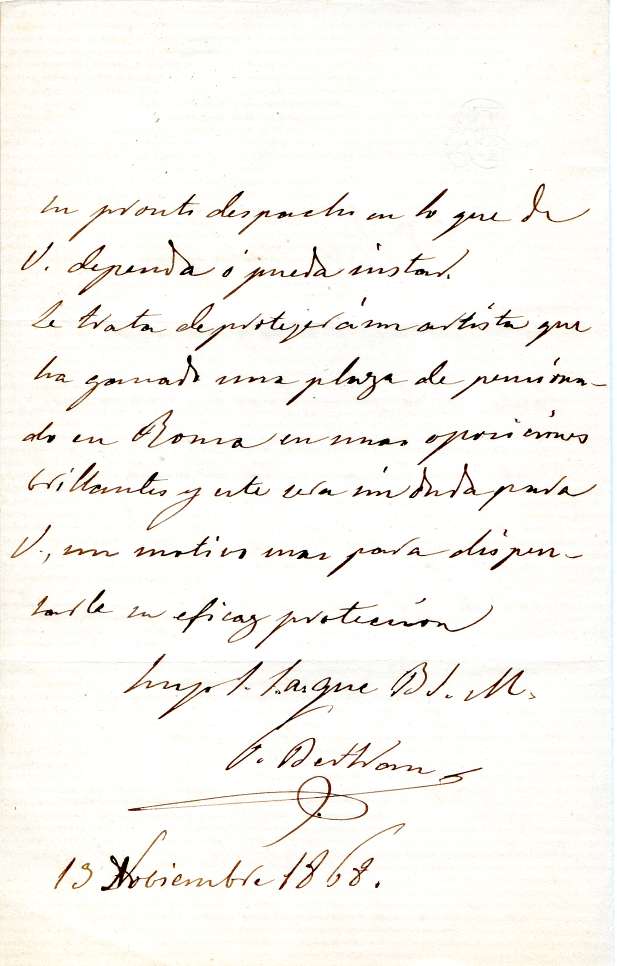 su pronto despacho en lo que de
V. dependa ó pueda instar.
Se trata de protejer á un artista que
ha ganado una plaza de pensiona-
do en Roma en unas oposiciones
brillantes y este sera sin duda para
V., un motivo mas para dispen-
sarle su eficaz proteccion
Suyo S. S. q. B S. M.
Bertran
13 Noviembre 1868.